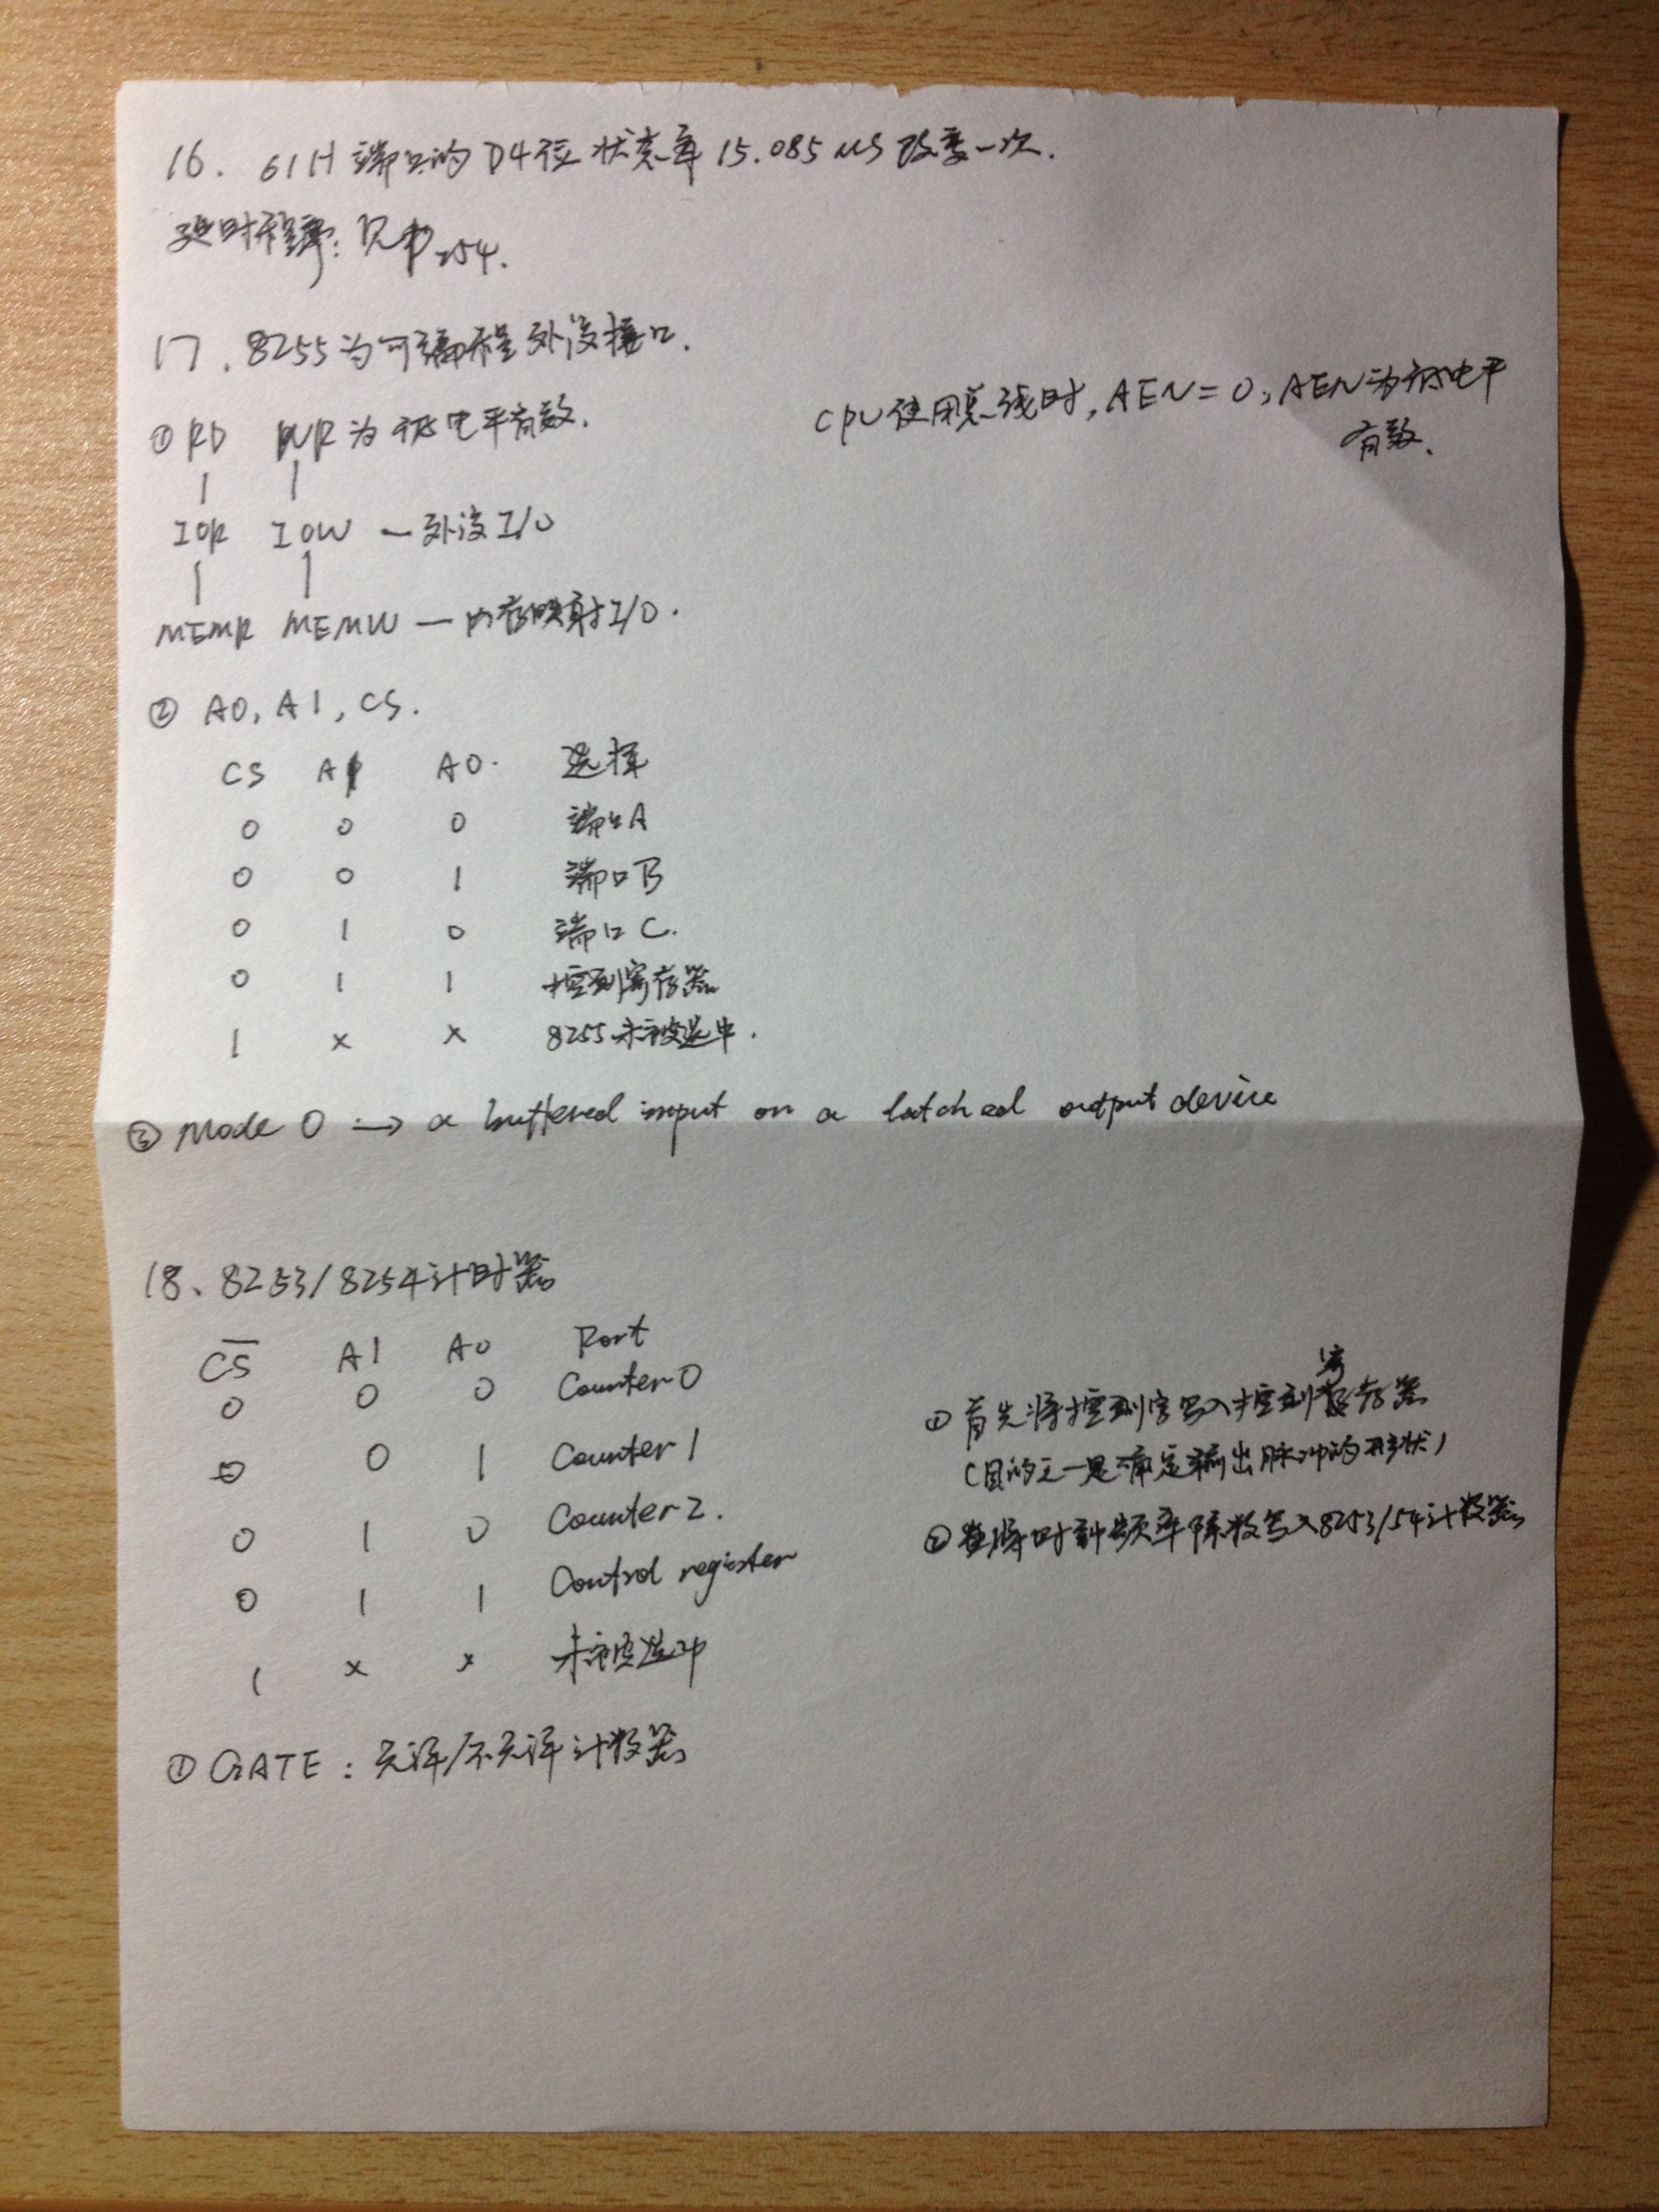 16. 61H端口的D4位状态每15.085μs改变一次.
延时程序: 见P254.
17. 8255为可编程外设接口.
① RD WR为低电平有效.
IOR IOW — 外设I/O
MEMR MEMW — 内存映射I/O.
CPU使用总线时, AEN=0, AEN为低电平
有效.
② A0, A1, CS.
CS A1 A0. 选择
0 0 0 端口A
0 0 1 端口B
0 1 0 端口C.
0 1 1 控制寄存器
1 × × 8255未被选中.
③ Mode 0 → a buffered input or a latched output device
18、8253/8254计时器
C̅S̅ A1 A0 Port
0 0 0 Counter 0
0 0 1 Counter 1
0 1 0 Counter 2.
0 1 1 Control register
1 × × 未被选中
① 首先将控制字写入控制寄存器
(目的之一是确定输出脉冲的形状)
② 将时钟频率除数写入8253/54计数器
① GATE: 允许/不允许计数器